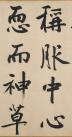 稱脹中心
而神草